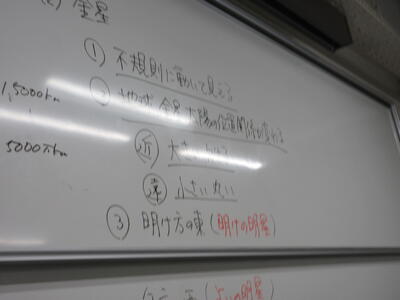 (2) 金星
① 不規則に動いて見える
1,5000km
② 地球 金星 太陽の位置関係が変わる
5000万km
近 大きい
遠 小さい 丸い
③ 明け方の東(明けの明星)
(よいの明星)